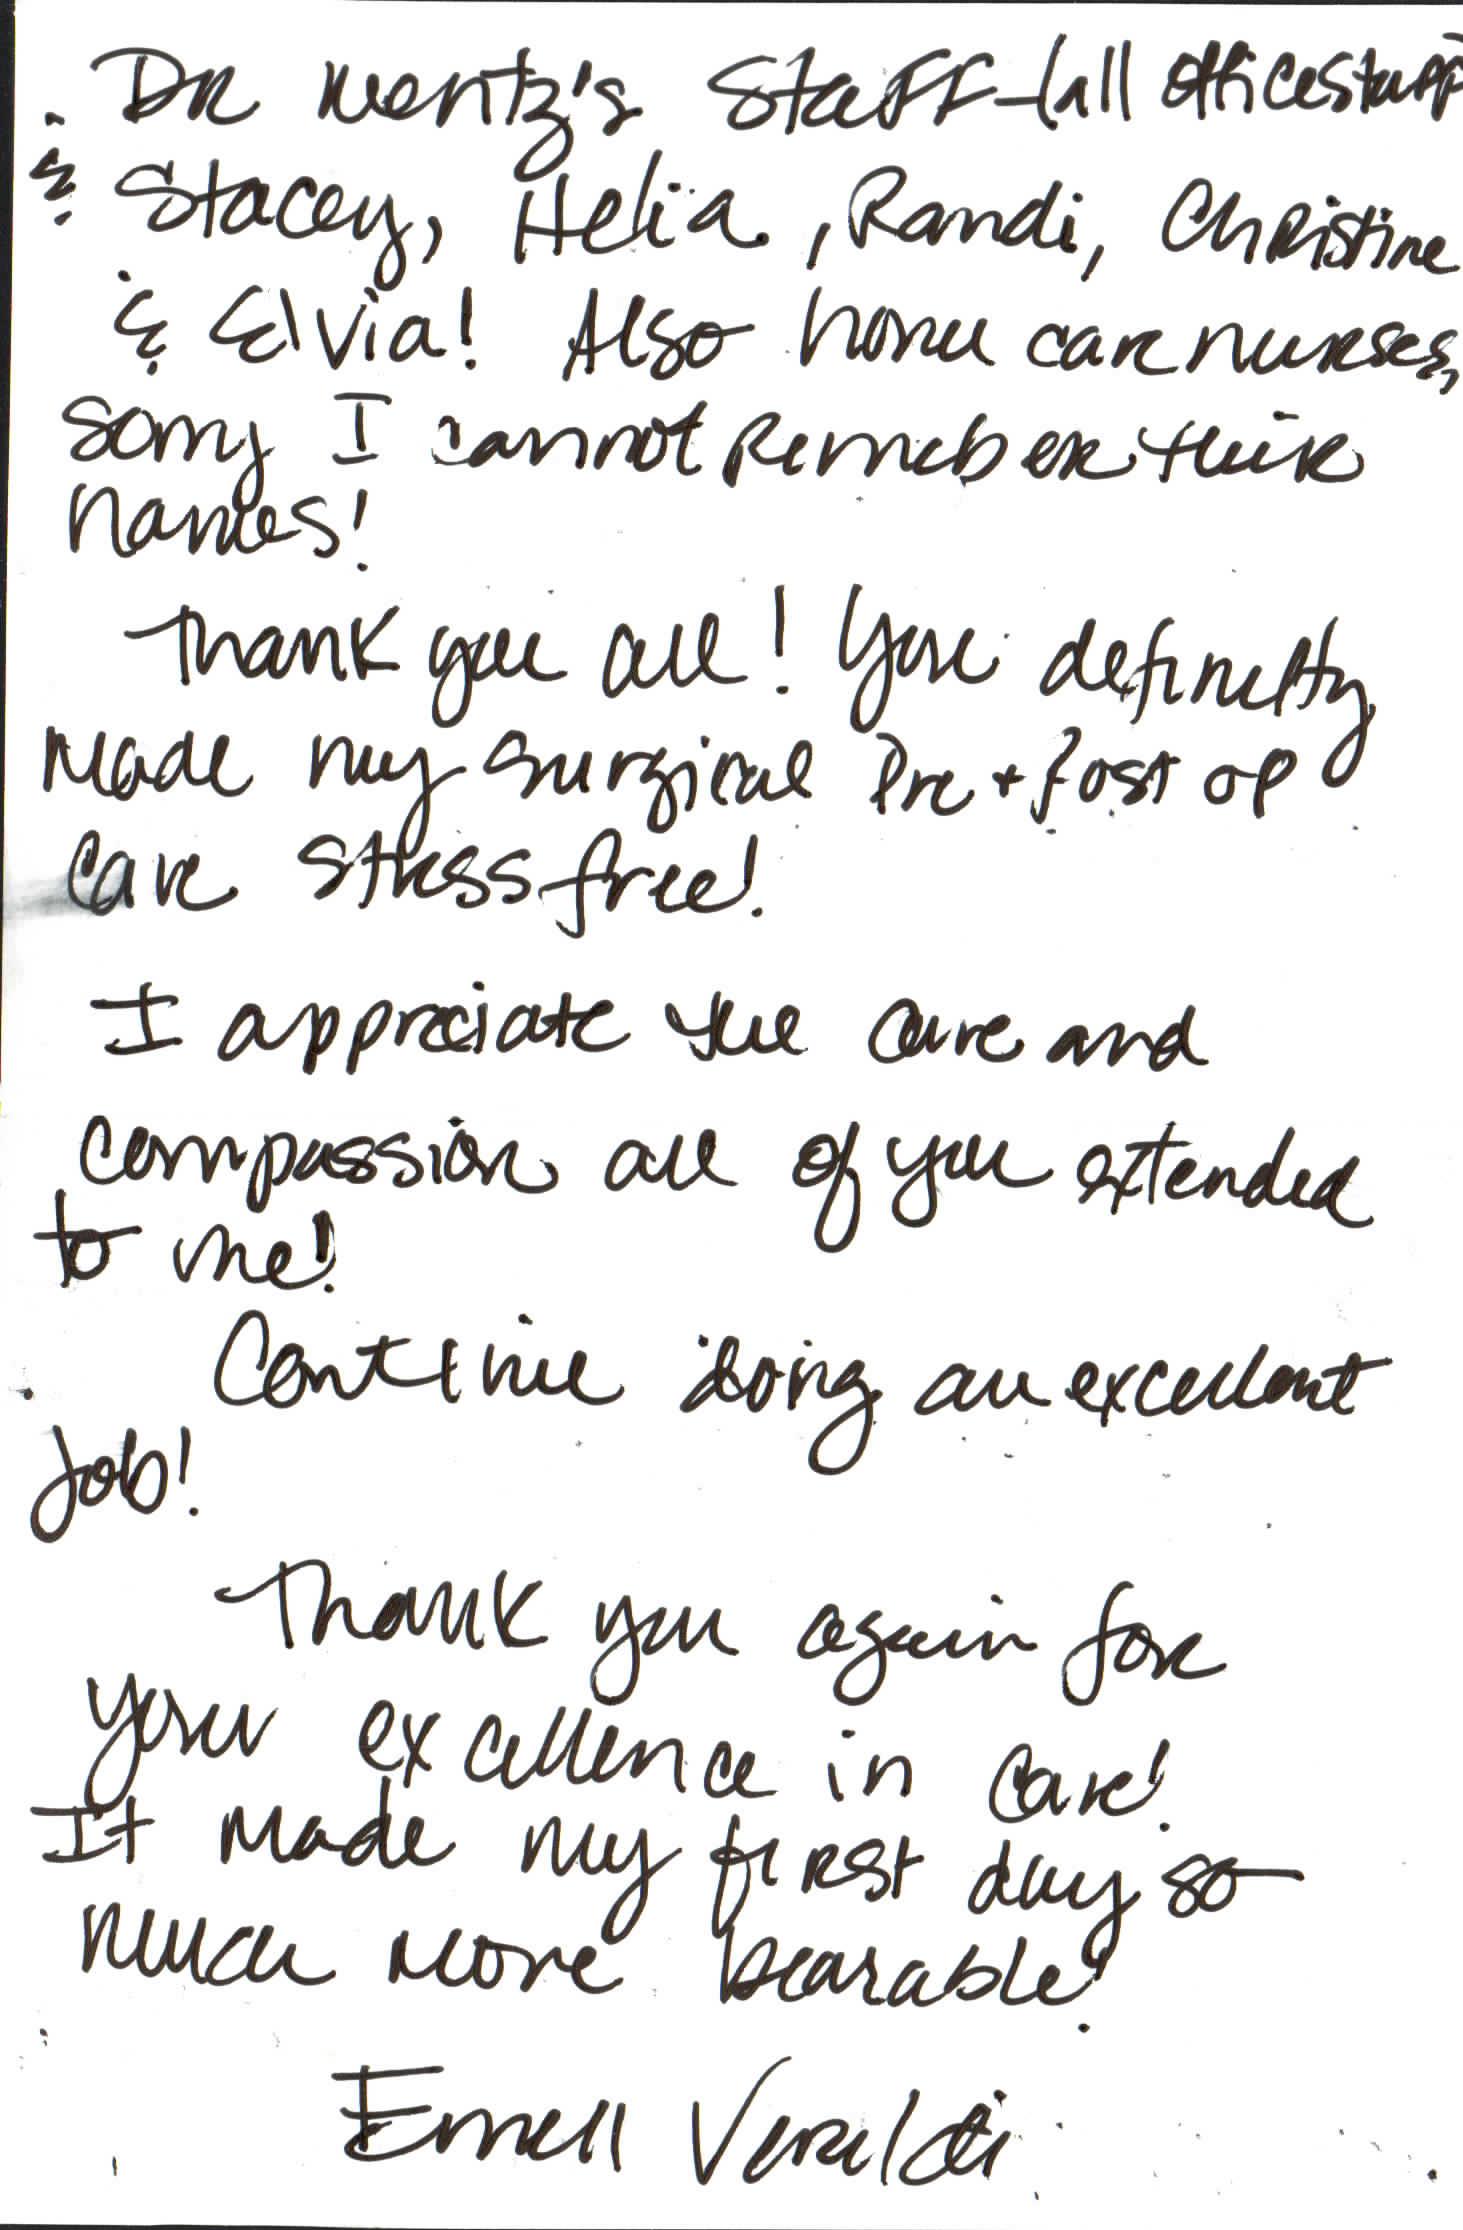 DR Wentz's Staff - (all office staff
& Stacey, Helia, Randi, Christine
& Elvia! Also home care nurses,
sorry I cannot Remeber their
names!
Thank you all! You definelty
made my surgical Pre + Post op
care stress free!
I appreciate the care and
compassion all of you extended
to me!
Continue doing an excellent
Job!
Thank you again for
your excellence in care!
It made my first day so
much more bearable!
Veraldi